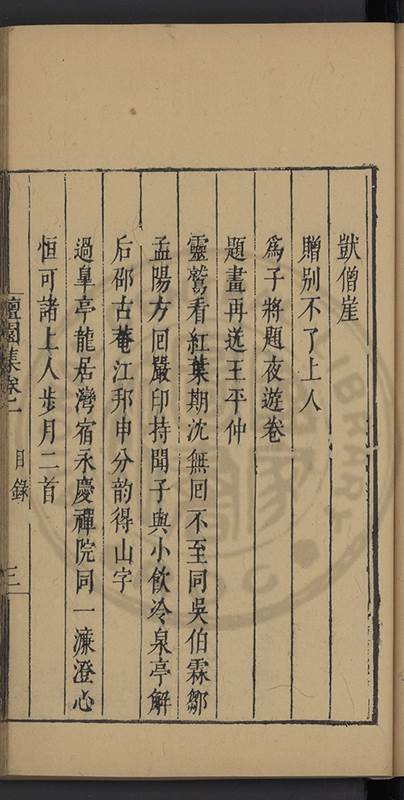 獃僧崖
贈別不了上人
為子將題夜遊卷
題畫再送王平仲
靈鷲看紅葉期沈無回不至同吳伯霖鄒
孟陽方回嚴印持聞子與小飲冷泉亭解
后邵古菴江邦申分韵得山字
過皐亭龍居灣宿永慶禪院同一濂澄心
恒可諸上人步月二首
檀園集卷一 目錄 三